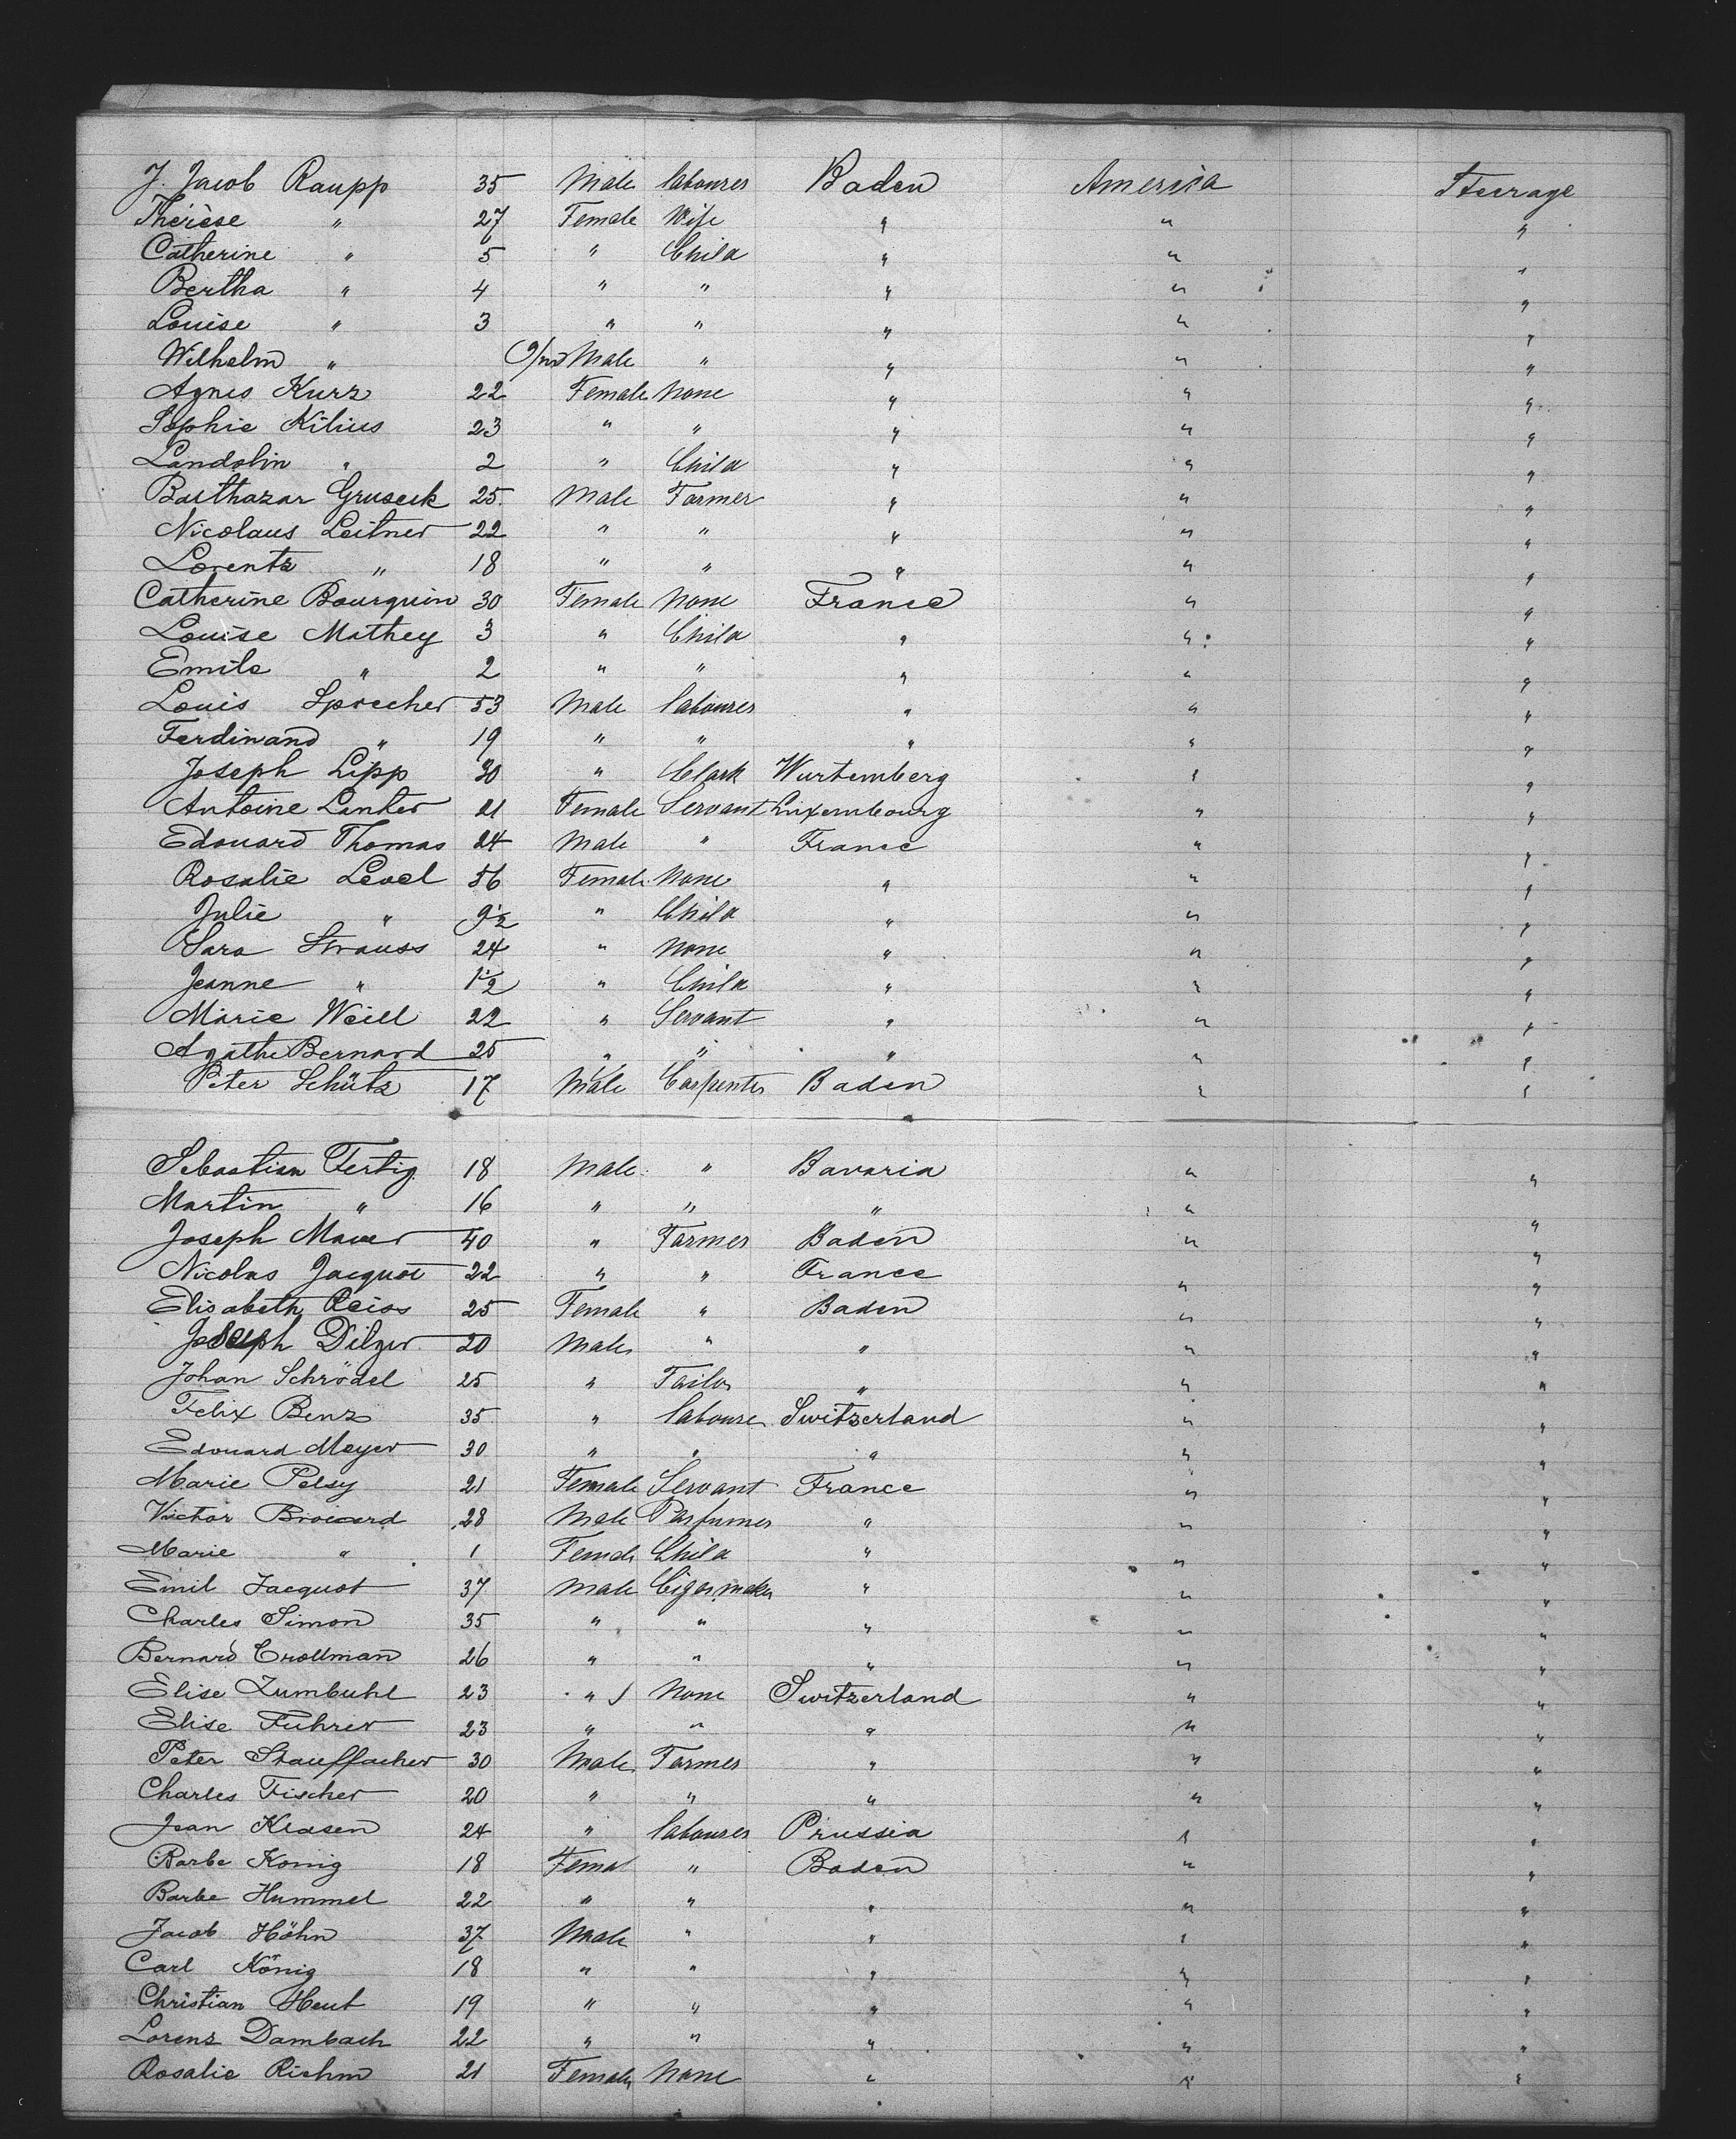 J. Jacob Raupp 35 Male labourer Baden America Steerage
Thérèse " 27 Female Wife " " "
Catherine " 5 " Child " " "
Bertha " 4 " " " " "
Louise " 3 " " " " "
Wilhelm " Male " " " "
Agnes Kurz 22 Female None " " "
Sophie Kilius 23 " " " " "
Landolin " 2 " Child " " "
Balthazar Gruseck 25 Male Farmer " " "
Nicolaus Leitner 22 " " " " "
Lorentz " 18 " " " " "
Catherine Bourquin 30 Female None France " "
Louise Mathey 3 " Child " " "
Emile " 2 " " " " "
Louis Sprecher 53 Male labourer " " "
Ferdinand " 19 " " " " "
Joseph Lipp 30 " Clark Wurtemberg " "
Antoine Lanter 21 Female Servant Luxembourg " "
Edouard Thomas 24 Male " France " "
Rosalie Level 56 Female None " " "
Julie " 9½ " Child " " "
Sara Strauss 24 " None " " "
Jeanne " 1½ " Child " " "
Marie Weill 22 " Servant " " "
Agathe Bernard 25 " " " " "
Peter Schütz 17 Male Carpenter Baden " "
Sebastian Fertig 18 Male " Bavaria " "
Martin " 16 " " " " "
Joseph Mauer 40 " Farmer Baden " "
Nicolas Jacquot 22 " " France " "
Elisabeth Reiss 25 Female " Baden " "
Joseph Dilger 20 Male " " " "
Johan Schrödel 25 " Tailor " " "
Felix Benz 35 " laboure Switzerland " "
Edouard Meyer 30 " " " " "
Marie Pelsy 21 Female Servant France " "
Victor 28 Male Parfumer " " "
Marie " 1 Female Child " " "
Emil Jacquot 37 Male Cigar maker " " "
Charles Simon 35 " " " " "
Bernard Crollman 26 " " " " "
Elise Zumbuhl 23 " None Switzerland " "
Elise Fuhrer 23 " " " " "
Peter Stauffacher 30 Male Farmer " " "
Charles Fischer 20 " " " " "
Jean Klasen 24 " labourer Prussia " "
Barbe Konig 18 Femal " Baden " "
Barbe Hummel 22 " " " " "
Jacob Höhn 37 Male " " " "
Carl König 18 " " " " "
Christian Heut 19 " " " " "
Lorenz Dambach 22 " " " " "
Rosalie Riehm 21 Female None " " "